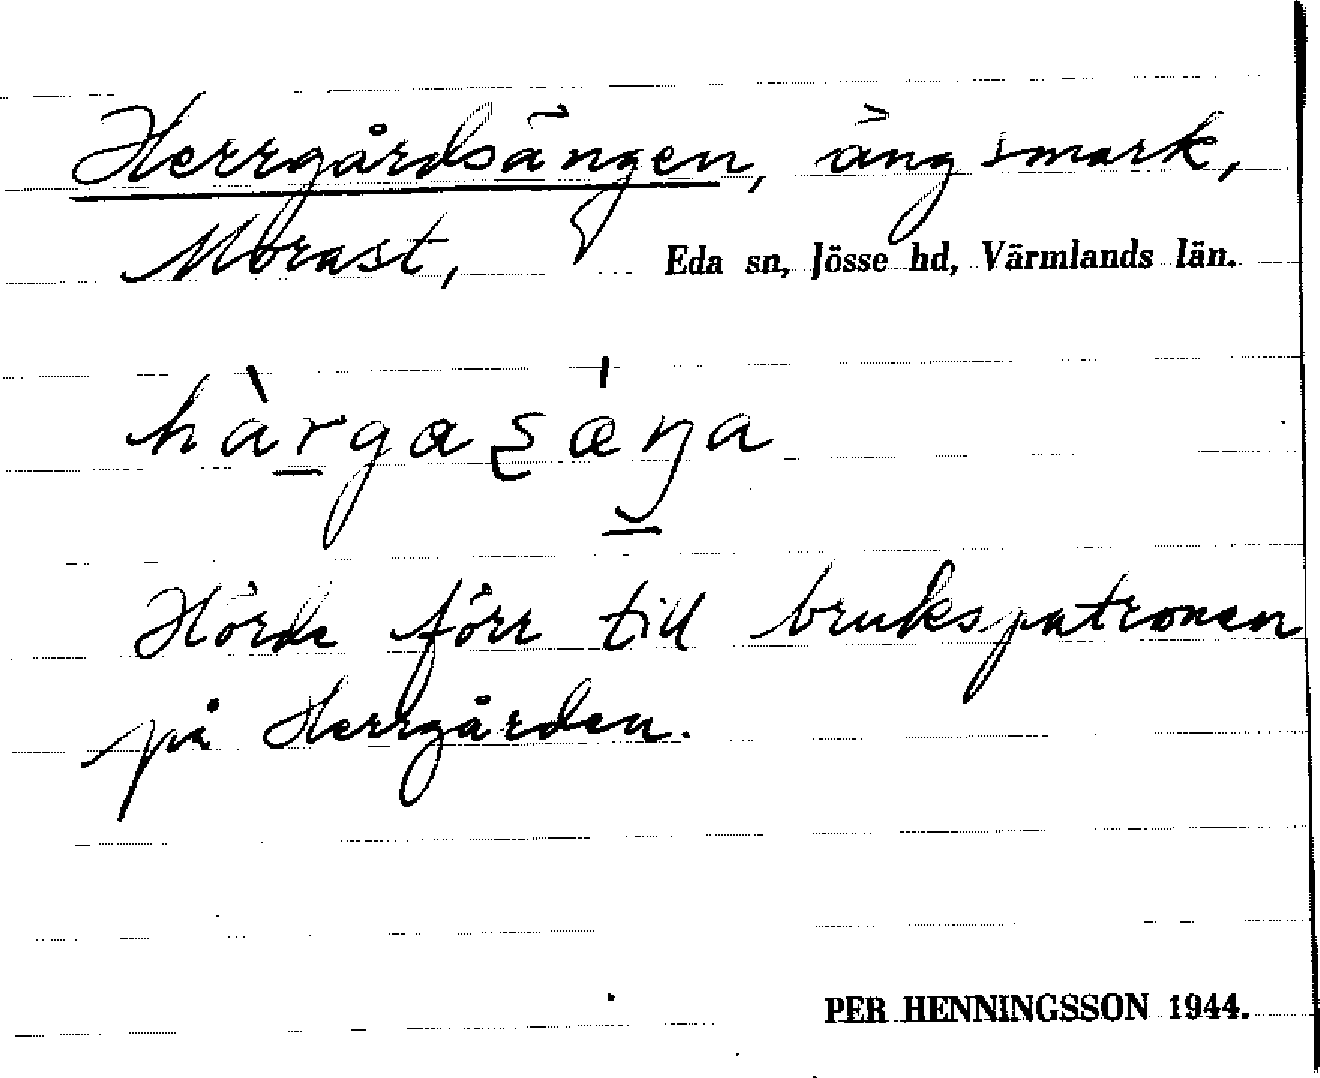 Herrgårdsängen, ängsmark,
Morast, Eda sn, Jösse hd, Värmlands län.
hàrgaʂæ̍ŋa
Hörde förr till brukspatronen
på Herrgården.
PER HENNINGSSON 1944.